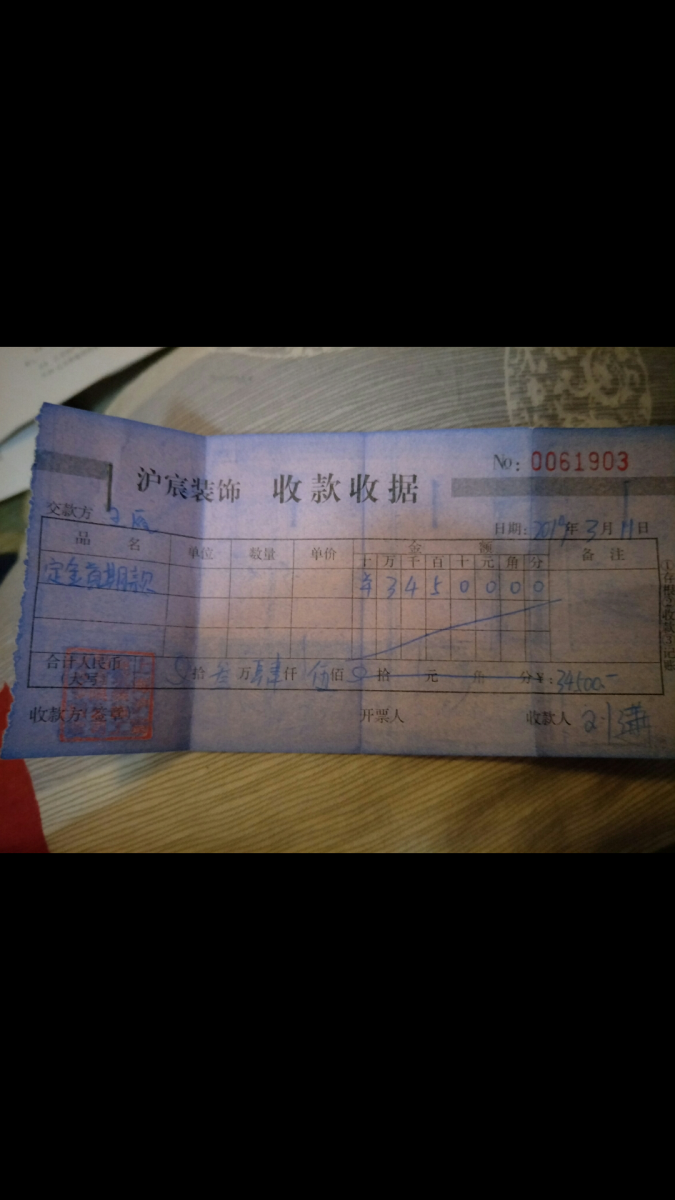 No: 0061903
沪宸装饰 收款收据
交款方
日期: 年 3 月 11 日
品 名 单位 数量 单价 金 额 备 注
十 万 千 百 十 元 角 分
定金首期款 ¥ 3 4 5 0 0 0 0
合计人民币
(大写) 拾 万 肆 仟 伍 佰 拾 元 角 分 ¥: 34500.-
收款方(签章) 开票人 收款人